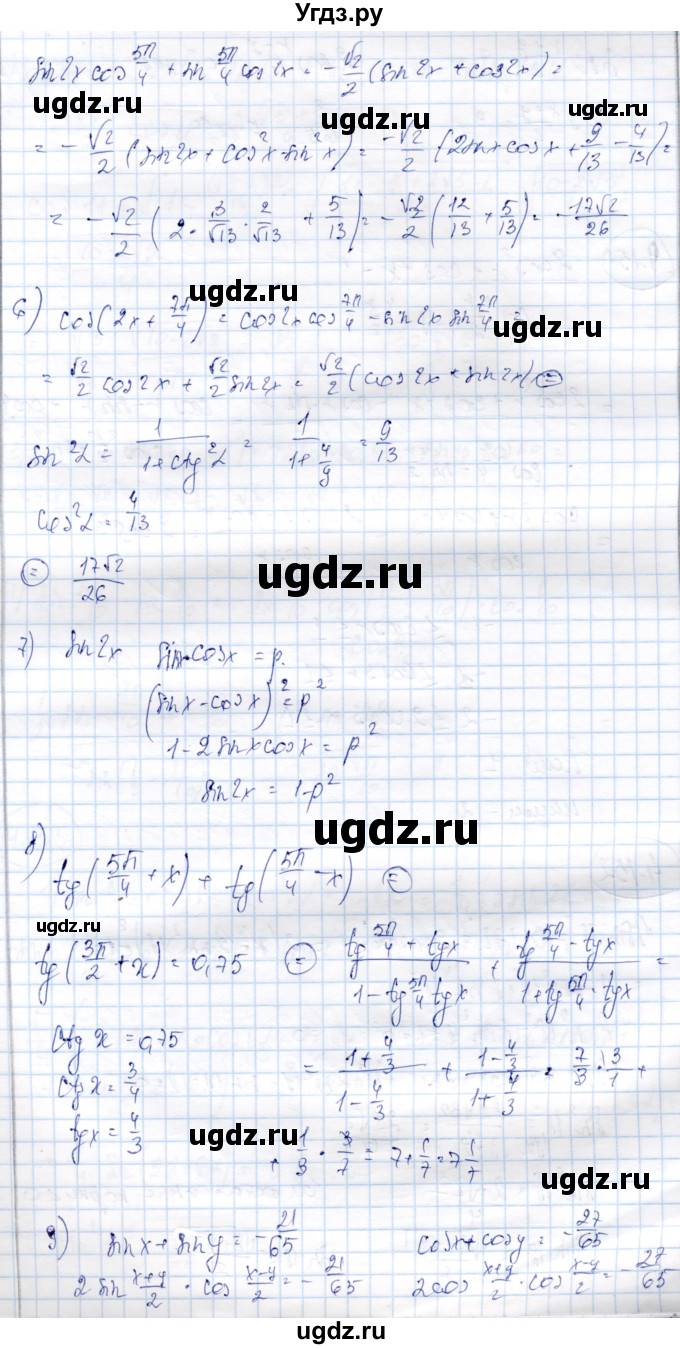 Угдз.ру
sin2x cos 5π/4 + sin 5π/4 cos2x = -√2/2 (sin2x + cos2x) =
ugdz.ru ugdz.ru ugdz.ru
= -√2/2 (sin2x + cos²x - sin²x) = -√2/2 (2sinxcosx + 9/13 - 4/13) =
= -√2/2 (2 · 3/√13 · 2/√13 + 5/13) = -√2/2 (12/13 + 5/13) = -17√2/26
ugdz.ru
6) cos(2x + 7π/4) = cos2x cos 7π/4 - sin2x sin 7π/4 =
= √2/2 cos2x + √2/2 sin2x = √2/2 (cos2x + sin2x) =
ugdz.ru ugdz.ru
sin²α = 1/(1+ctg²α) = 1/(1+4/9) = 9/13
cos²α = 4/13
= 17√2/26
ugdz.ru
7) sin2x sinx-cosx = p.
(sinx - cosx)² = p²
1 - 2sinxcosx = p²
sin2x = 1-p²
ugdz.ru
8) tg(5π/4 + x) + tg(5π/4 - x) =
ugdz.ru ugdz.ru
tg(3π/2 + x) = 0,75 = (tg 5π/4 + tgx)/(1 - tg 5π/4 tgx) + (tg 5π/4 - tgx)/(1 + tg 5π/4 · tgx) =
ctg x = 0,75
ctg x = 3/4 = (1+4/3)/(1-4/3) + (1-4/3)/(1+4/3) = 7/3 · 3/1 +
tgx = 4/3
ugdz.ru
+ 1/3 · 3/7 = 7+1/7 = 7 1/7
ugdz.ru
9) sinx + siny = -21/65 cosx + cosy = -27/65
2 sin (x+y)/2 · cos (x-y)/2 = -21/65 2cos (x+y)/2 · cos (x-y)/2 = -27/65
ugdz.ru